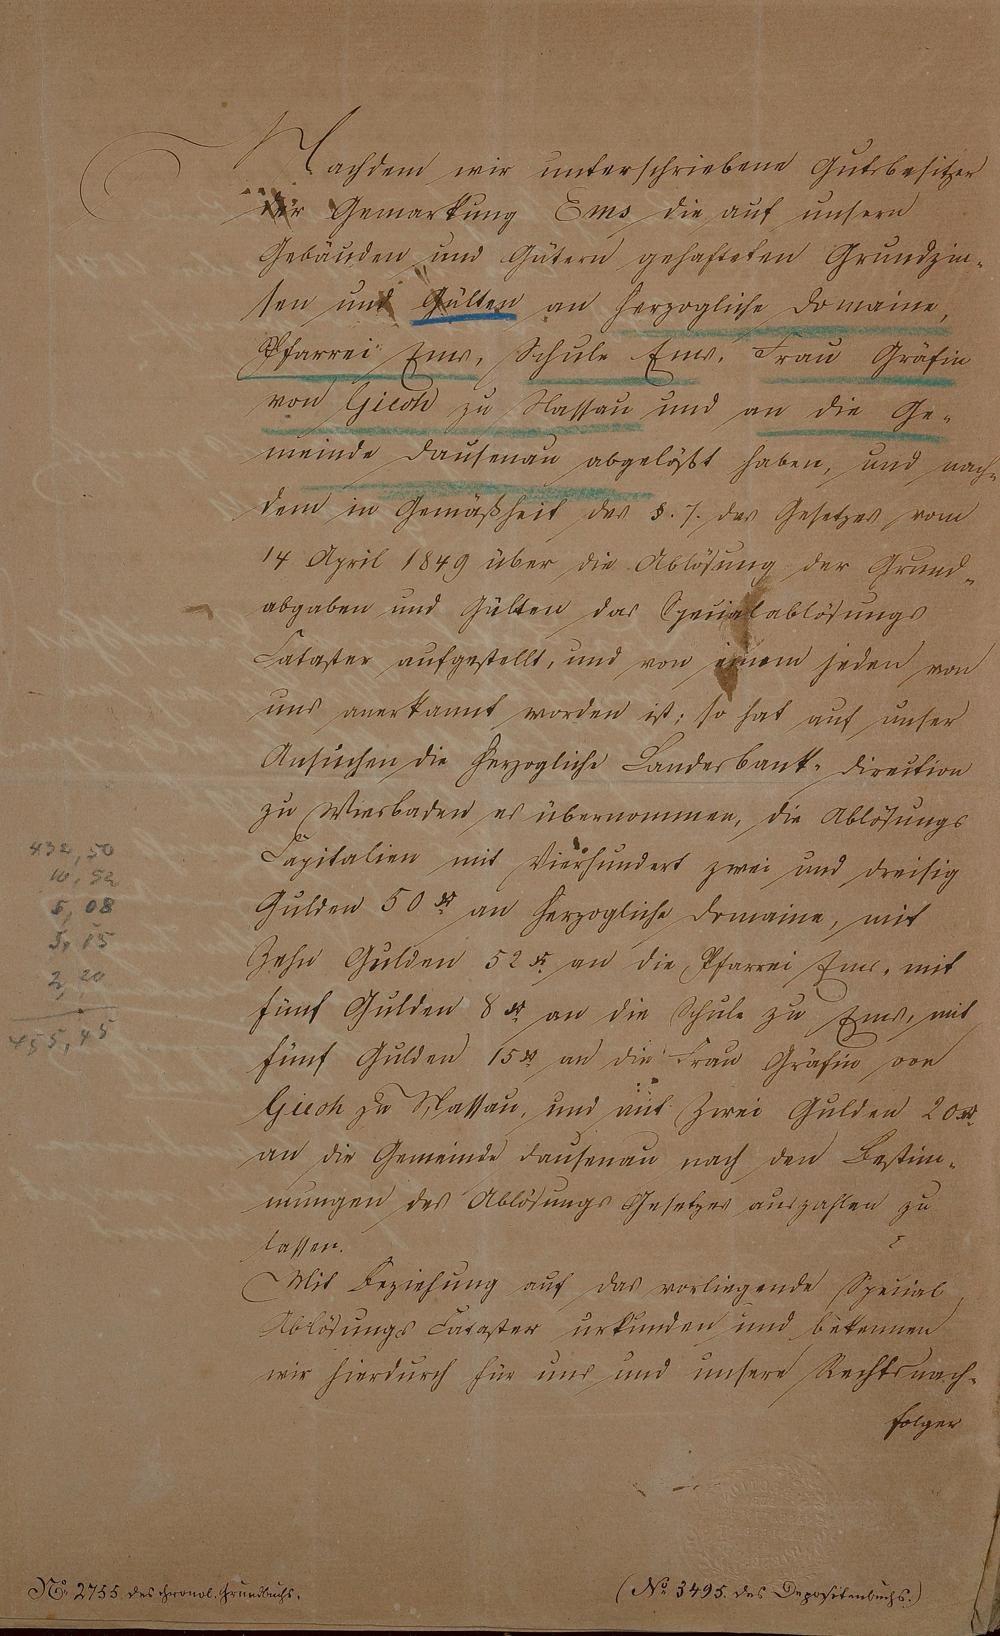 Nachdem wir unterschriebene Gutsbesitzer
der Gemarkung Ems die auf unsern
Gebäuden und Gütern gehafteten Grundzin-
sen und Gülten an Herzogliche Domaine,
Pfarrei Ems, Schule Ems, Frau Gräfin
von Giech zu Nassau und an die Ge-
meinde Dausenau abgelößt haben, und nach-
dem in Gemäßheit des §. 7. des Gesetzes vom
14 April 1849 über die Ablösung der Grund-
abgaben und Gülten das Specialablösungs
Cataster aufgestellt, und von einem jeden von
uns anerkannt worden ist; so hat auf unser
Ansuchen die Herzogliche Landesbank-direction
zu Wiesbaden es übernommen, die Ablösungs
Capitalien mit Vierhundert zwei und dreisig
Gulden 50 xr an Herzogliche Domaine, mit
Zehn Gulden 52 xr an die Pfarrei Ems, mit
fünf Gulden 8 xr an die Schule zu Ems, mit
fünf Gulden 15 xr an die Frau Gräfin von
Giech zu Nassau, und mit Zwei Gulden 20 xr
an die Gemeinde Dausenau nach den Bestim-
mungen des Ablösungs Gesetzes auszahlen zu
lassen.
Mit Beziehung auf das vorliegende Special
Ablösungs Cataster urkunden und bekennen
wir hierdurch für uns und unsere Rechtsnach-
folger
432,50
10,52
5,08
5,15
2,20
455,45
No. 2755 des chronol. Grundbuchs.
(No. 3495. des Depositenbuchs.)